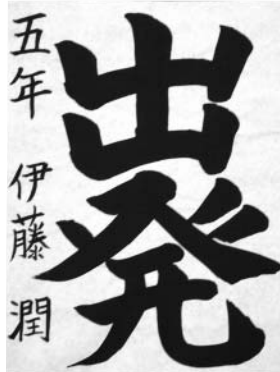 出発
五年 伊藤 潤